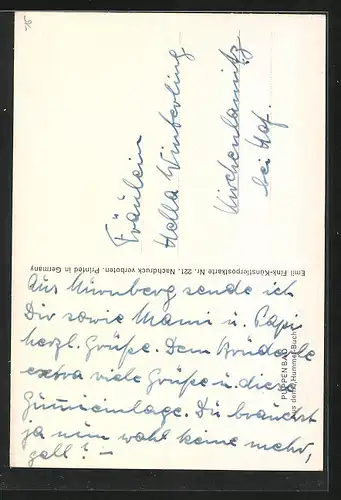 Fräulein
Hella Winterling
Kirchenlamitz
bei Hof.
Emil Fink-Künstlerpostkarte Nr. 221. Nachdruck verboten. Printed in Germany
PUPPENBAD
Aus dem „Hummel-Buch“
Aus Nürnberg sende ich
Dir sowie Mami u. Papi
herzl. Grüße. Dem Brüderle
extra viele Grüße u. diese
Gummieinlage. Du brauchst
ja nun wohl keine mehr,
gell? —